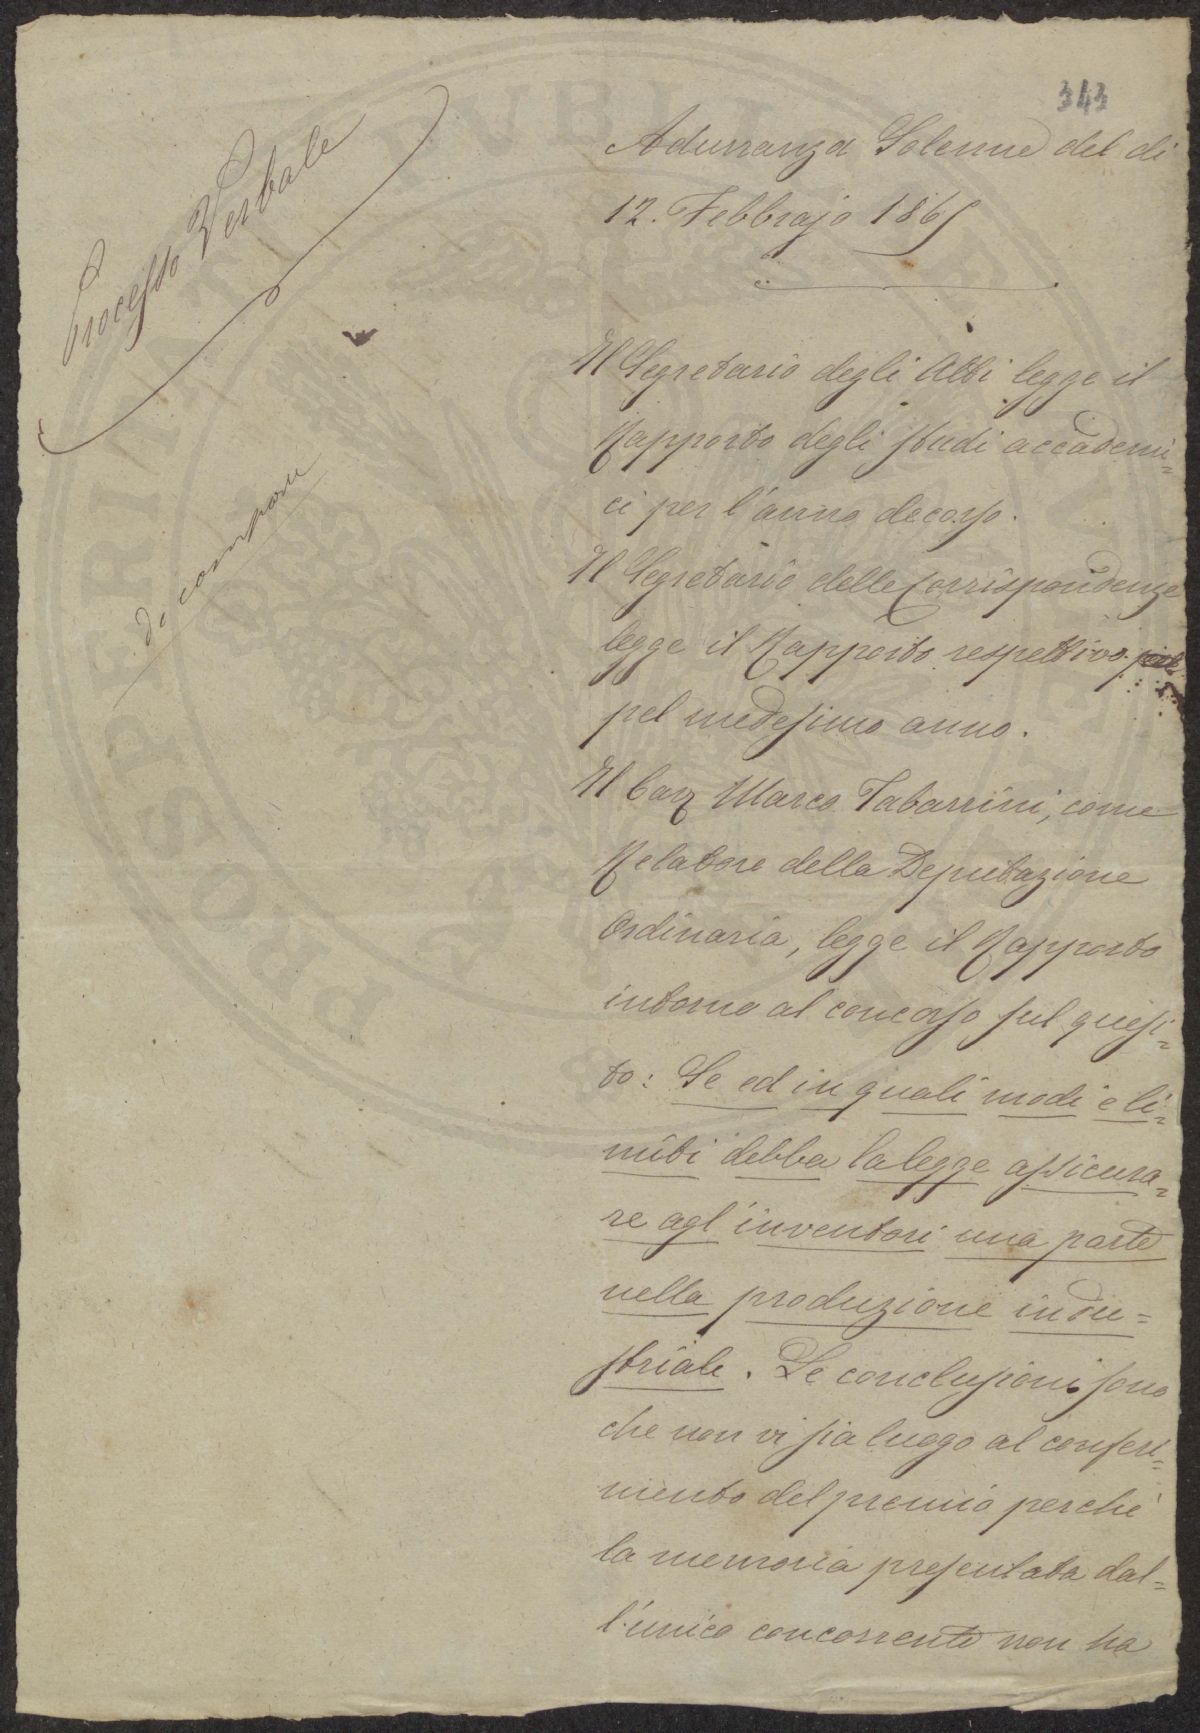 343
Processo Verbale
da comporre
Adunanza Solenne del dì
12. Febbrajo 1865
Il Segretario degli Atti legge il
Rapporto degli studi accademi=
ci per l'anno decorso.
Il Segretario delle Corrispondenze
legge il Rapporto respettivo
pel medesimo anno.
Il Cav Marco Tabarrini, come
Relatore della Deputazione
Ordinaria, legge il Rapporto
intorno al concorso sul quesi=
to: Se ed in quali modi e li=
miti debba la legge assicura=
re agl'inventori una parte
nella produzione indu=
striale. Le conclusioni sono
che non vi sia luogo al conferi=
mento del premio perchè
la memoria presentata dal=
l'unico concorrente non ha
PROSPERITATI PVBLICAE